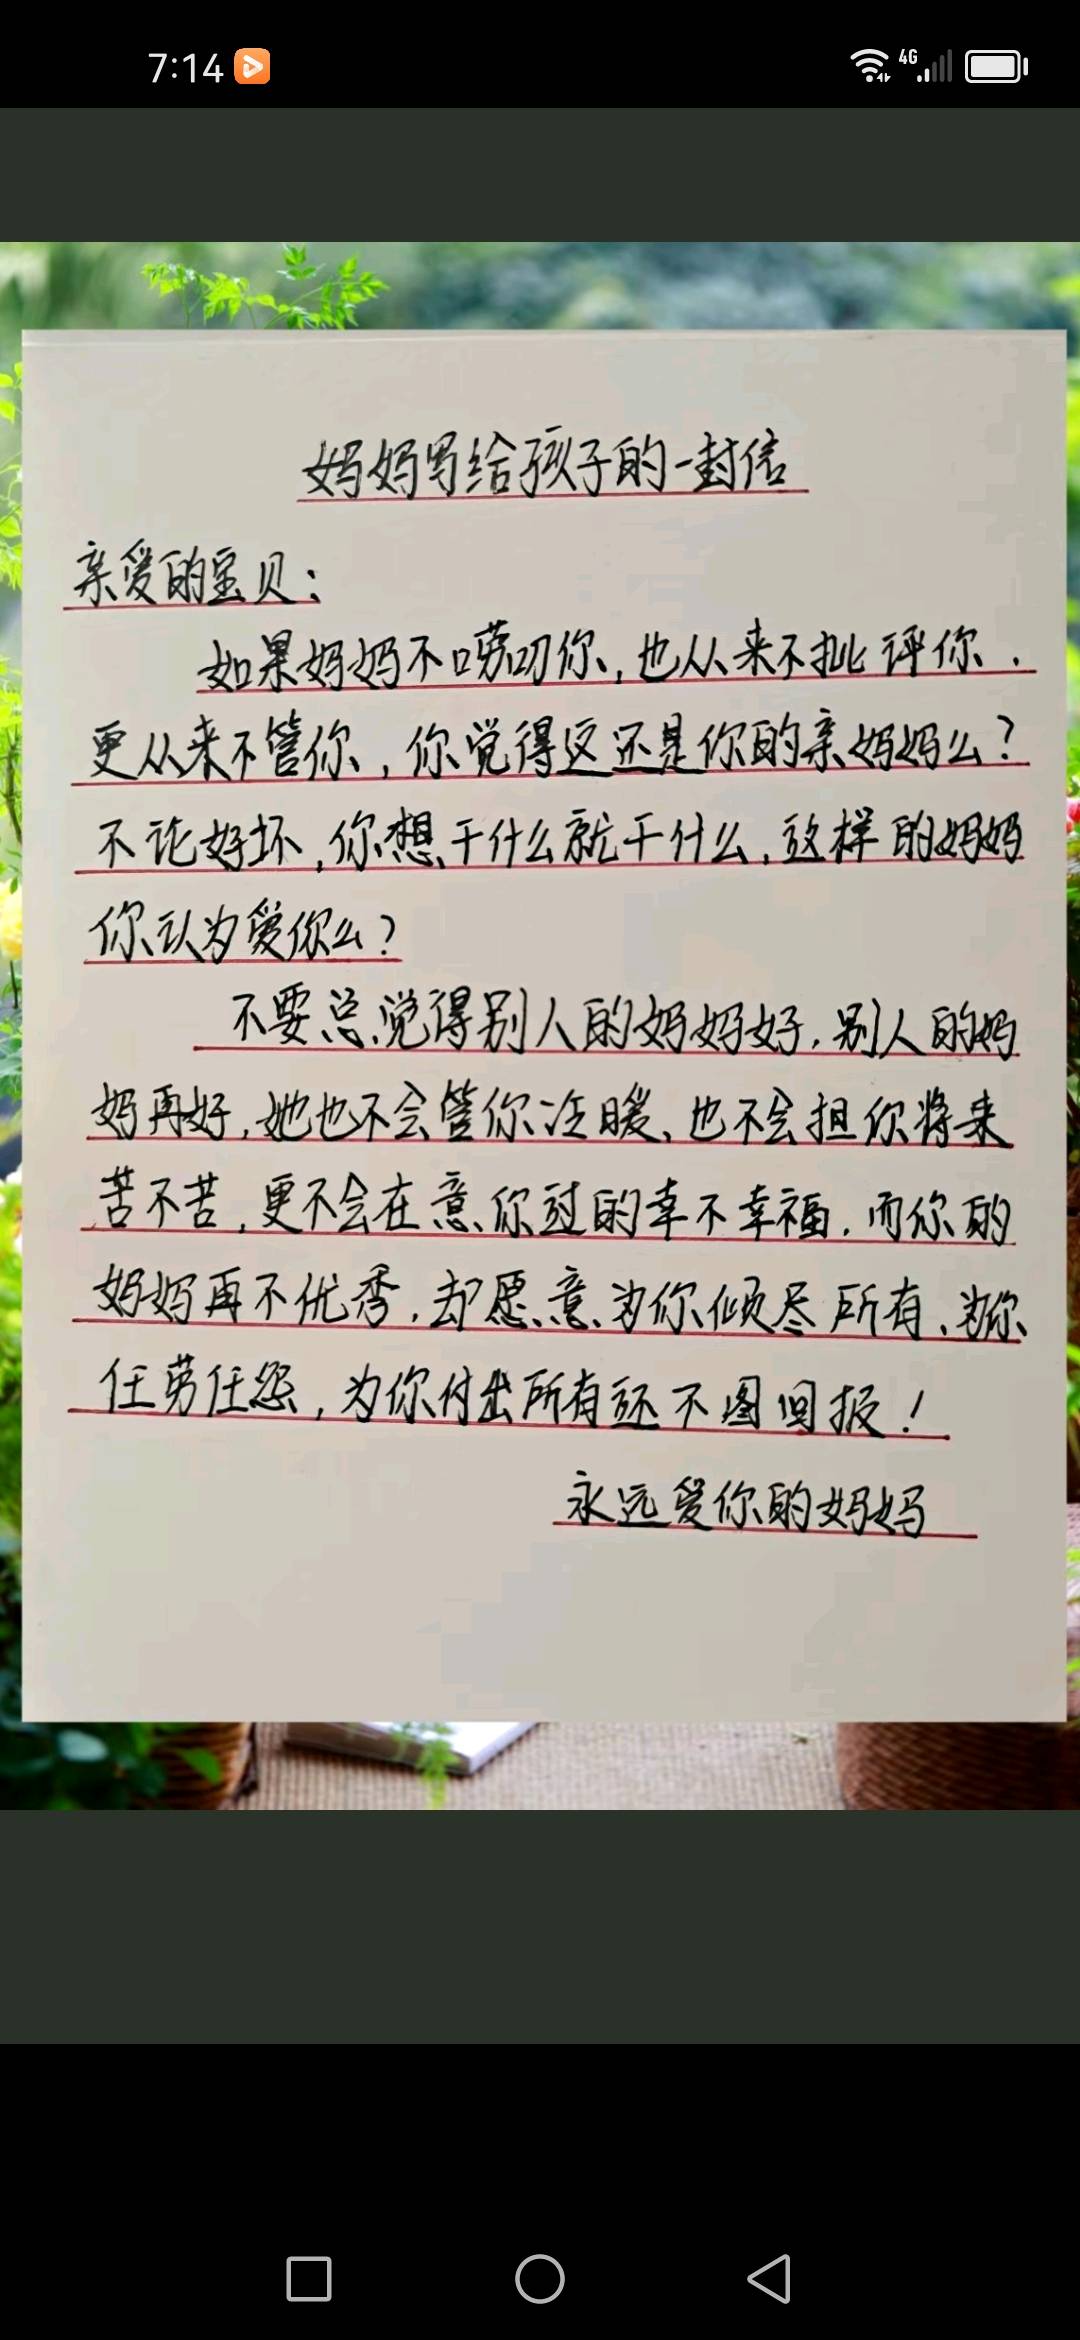 7:14
4G
妈妈写给孩子的一封信
亲爱的宝贝：
如果妈妈不唠叨你，也从来不批评你，
更从来不管你，你觉得这还是你的亲妈妈么？
不论好坏，你想干什么就干什么，这样的妈妈
你认为爱你么？
不要总觉得别人的妈妈好，别人的妈
妈再好，她也不会管你冷暖、也不会担你将来
苦不苦，更不会在意你过的幸不幸福，而你的
妈妈再不优秀，却愿意为你倾尽所有、为你
任劳任怨，为你付出所有还不图回报！
永远爱你的妈妈